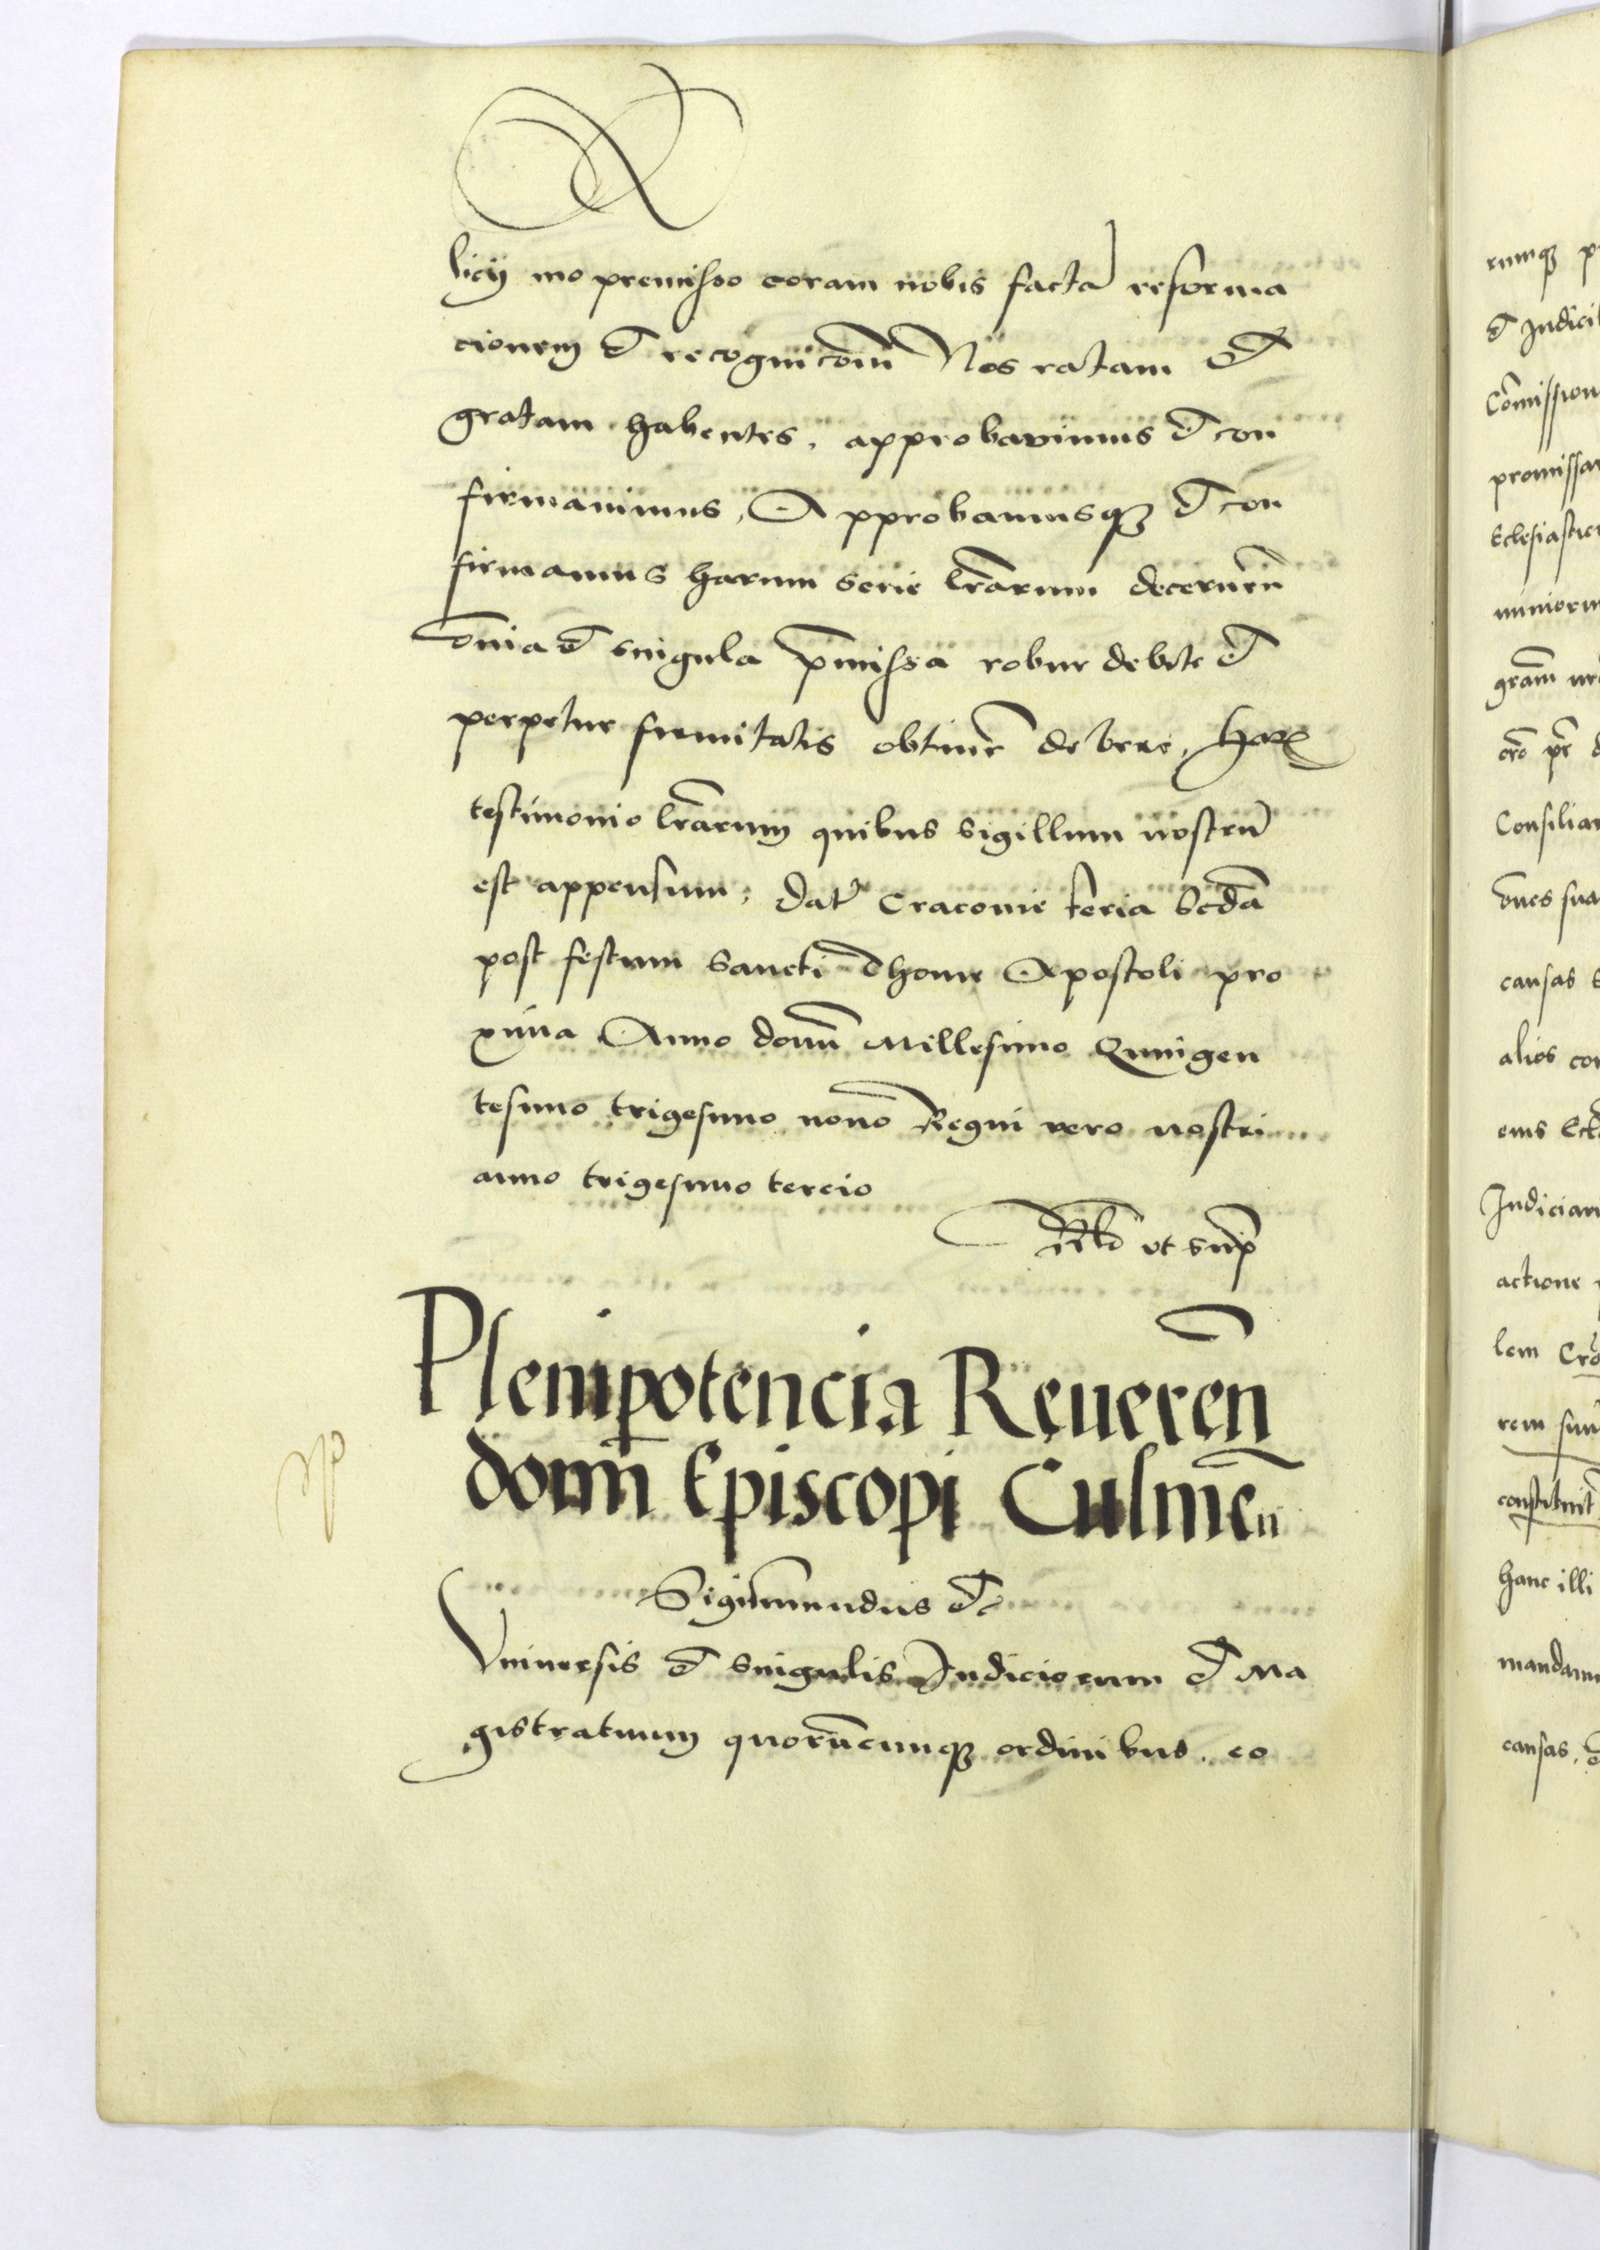 licij mo premisso coram nobis factã reforma
cionem et recognicõm Nos ratam et
gratam habentes, approbavimus et con
firmavimus, Approbamusq₃ et con
firmamus harum serie lr̃arum decernen̄
om̄ia et singula p̄missa robur debite et
perpetue firmitatis obtinẽr debere, Harꝝ
testimonio lr̃arum quibus sigillum nostrũ
est appensum, Datȝ Cracovie feria Scd̃a
post festum Sancti Thome Apostoli pro
xima Anno domĩ Millesimo Quingen
tesimo trigesimo nono Regni vero nostri
anno trigesimo tercio
Rl̃o ut sup̃
Plenipotencia Reueren̄
domĩ Episcopi Culmen̄
Sigismundus etc
Vniuersis et singulis Iudiciorum et Ma
gistratuum quorũcumq₃ ordinibus, eo
rumq₃
et Iudicii
Cõmission
promissar
Eclesiastic
grãm
Consiliar
om̃es sua
causas
alios con
eius Ecl
Iudiciari
actione
lem
rem suũ
constituit
hanc illi
mandam
causas,